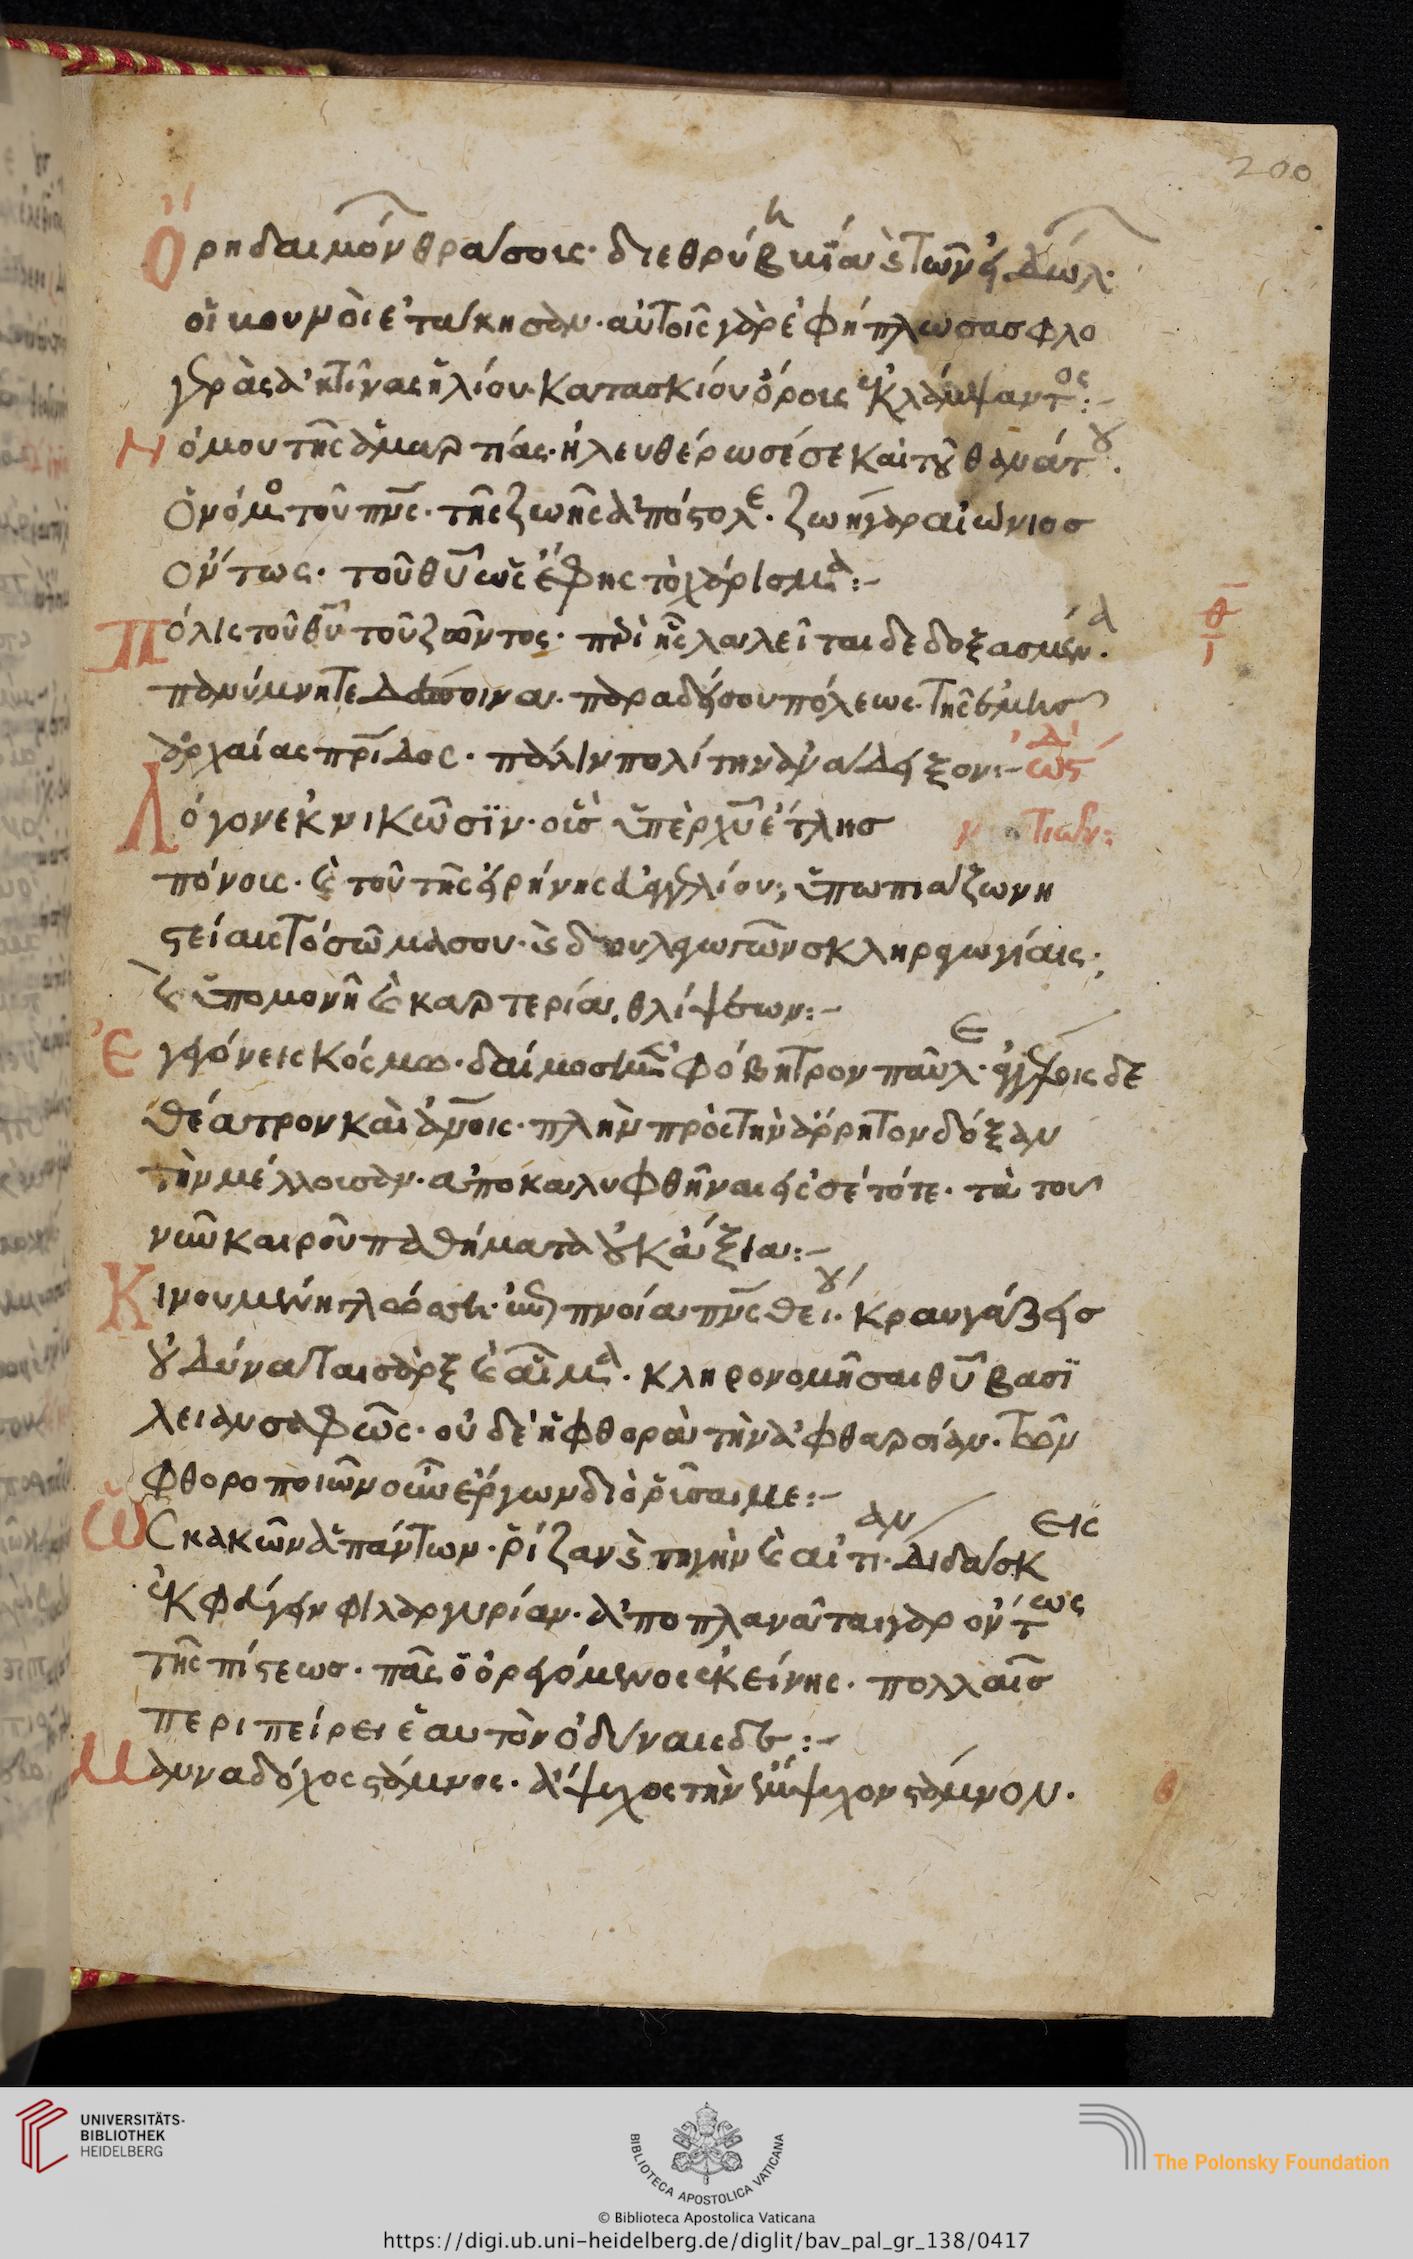 200
Ὄρη δαιμόν θράσοις· διεθρύβη κίαι ς τῶν εἰδώλ·
οἱ βουνοὶ ἐτάκησαν· αὐτοῖς γὰρ ἐφήπλωσας φλο
γερὰς ἀκτῖνας ἡλίου· κατασκίου ὄροις ἐκλάμψαντος:–
Νόμου τῆς ἁμαρτίας· ἠλευθέρωσέ σε καὶ τοῦ θανάτου·
ὁ νόμο τοῦ πνς· τῆς ζωῆς ἀπόστολε· ζωὴ γὰρ αἰώνιος
ὄντως· τοῦ θυ ὡς ἔφης τὸ χάρισμα:–
Πόλις τοῦ θυ τοῦ ζῶντος· περὶ ἧς λαλεῖται δεδοξασμένα·
πανύμνητε δέσποινα· παραδείσου πόλεως· τῆς ἐμῆς
ἀρχαίας πρίδος· πάλιν πολίτην ἀνάδειξον:–
Λόγον ἐκνικῶσιν· οἷς ὑπὲρ χυ ἔτλης
πόνοις· καὶ τοῦ τῆς εἰρήνης εὐαγγελίου; ὑπωπιάζων νη
στείαις τὸ σῶμα σου· καὶ δουλαγωγῶν σκληραγωγίαις·
καὶ ὑπομονῆ καὶ καρτερία, θλίψεων:–
Ἐγεγόνεις κόσμω· δαίμοσι μὲν φόβητρον παῦλε· ἀγγέλοις δὲ
θέατρον καὶ ἀνοις· πλὴν πρὸς τὴν ἄρρητον δόξαν
τὴν μέλλουσαν· ἀποκαλυφθῆναι εἰς σέ τότε· τὰ τοῦ
νῦν καιροῦ παθήματα οὐκ ἄξια:–
Κινουμένη γλῶσση· ἐν πνοία πνς θείου· κραυγάζεις
οὐ δύναται σὰρξ καὶ αἷμα· κληρονομῆσαι θυ βασι
λείαν σαφῶς· οὐδὲ ἡ φθορὰ τὴν ἀφθαρσίαν· τῶν
φθοροποιῶν οὖν ἔργων διὸ ῥῦσαι με:–
Ὡς κακῶν ἁπάντων· ῥίζαν ς πηγὴν καὶ αἰτίαν· διδάσκεις
ἐκφεύγειν φιλαργυρίαν· ἀποπλανᾶται γὰρ ὄντως
τῆς πίστεως· πᾶς ὁ ὀρεγόμενος ἐκείνης· πολλαῖς
περιπείρει ἑαυτὸν ὀδύναις δε:–
Μανναδόχος στάμνος· ἄψυχος τὴν ἔμψυχον στάμνον·
UNIVERSITÄTS-
BIBLIOTHEK
HEIDELBERG
BIBLIOTECA APOSTOLICA VATICANA
The Polonsky Foundation
© Biblioteca Apostolica Vaticana
https://digi.ub.uni-heidelberg.de/diglit/bav_pal_gr_138/0417